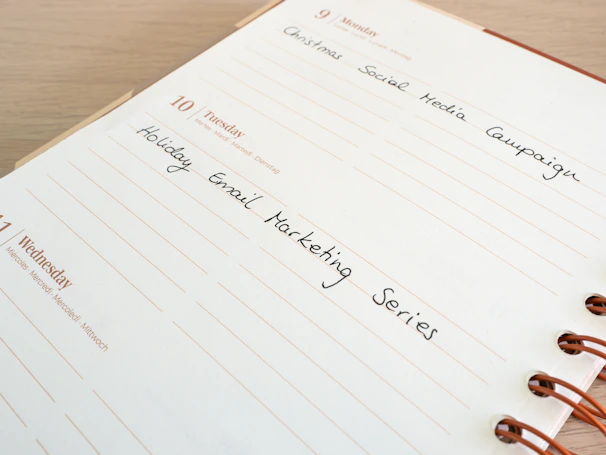 9 Monday
Christmas Social Media Campaign
10 Tuesday
Martes · Mardi · Martedì · Dienstag
Holiday Email Marketing Series
11 Wednesday
Miércoles · Mercredi · Mercoledì · Mittwoch